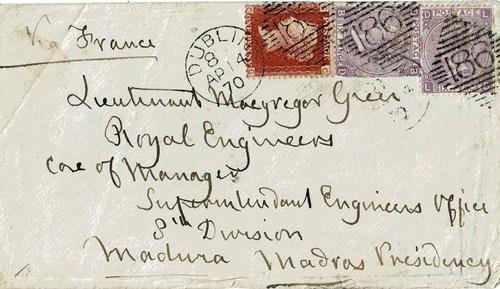 Via France
DUBLIN
8
AP 14
70
186
186
186
Lieutenant Macgregor Greer
Royal Engineers
Care of Manager
Superintendant Engineers Office
8th Division
Madura Madras Presidency